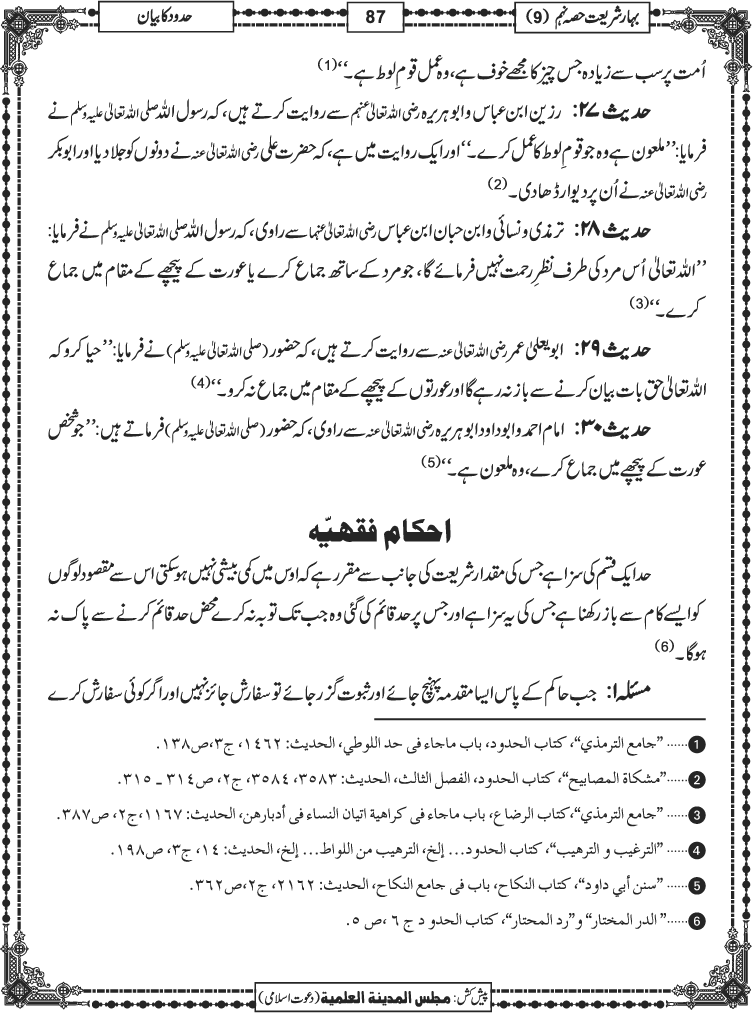 بہارِ شریعت حصہ نہم (9)
87
حدود کا بیان
اُمت پر سب سے زیادہ جس چیز کا مجھے خوف ہے، وہ عمل قومِ لوط ہے۔‘‘(1)
حدیث ۲۷: رزین ابن عباس و ابوہریرہ رضی اللہ تعالیٰ عنہم سے روایت کرتے ہیں، کہ رسول اللہ صلی اللہ تعالیٰ علیہ وسلم نے
فرمایا: ’’ملعون ہے وہ جو قومِ لوط کا عمل کرے۔‘‘ اور ایک روایت میں ہے، کہ حضرت علی رضی اللہ تعالیٰ عنہ نے دونوں کو جلا دیا اور ابوبکر
رضی اللہ تعالیٰ عنہ نے اُن پر دیوار ڈھا دی۔(2)
حدیث ۲۸: ترمذی و نسائی و ابن حبان ابن عباس رضی اللہ تعالیٰ عنہما سے راوی، کہ رسول اللہ صلی اللہ تعالیٰ علیہ وسلم نے فرمایا:
’’اللہ تعالیٰ اُس مرد کی طرف نظرِ رحمت نہیں فرمائے گا، جو مرد کے ساتھ جماع کرے یا عورت کے پیچھے کے مقام میں جماع
کرے۔‘‘(3)
حدیث ۲۹: ابو یعلیٰ عمر رضی اللہ تعالیٰ عنہ سے روایت کرتے ہیں، کہ حضور (صلی اللہ تعالیٰ علیہ وسلم) نے فرمایا: ’’حیا کرو کہ
اللہ تعالیٰ حق بات بیان کرنے سے باز نہ رہے گا اور عورتوں کے پیچھے کے مقام میں جماع نہ کرو۔‘‘(4)
حدیث ۳۰: امام احمد و ابو داود ابوہریرہ رضی اللہ تعالیٰ عنہ سے راوی، کہ حضور (صلی اللہ تعالیٰ علیہ وسلم) فرماتے ہیں: ’’جو شخص
عورت کے پیچھے میں جماع کرے، وہ ملعون ہے۔‘‘(5)
احکام فقھیّه
حد ایک قسم کی سزا ہے جس کی مقدار شریعت کی جانب سے مقرر ہے کہ اوس میں کمی بیشی نہیں ہو سکتی اس سے مقصود لوگوں
کو ایسے کام سے باز رکھنا ہے جس کی یہ سزا ہے اور جس پر حد قائم کی گئی وہ جب تک توبہ نہ کرے محض حد قائم کرنے سے پاک نہ
ہوگا۔(6)
مسئلہ ۱: جب حاکم کے پاس ایسا مقدمہ پہنچ جائے اور ثبوت گزر جائے تو سفارش جائز نہیں اور اگر کوئی سفارش کرے
1 ...... ’’جامع الترمذي‘‘، کتاب الحدود، باب ماجاء فی حد اللوطي، الحدیث: ١٤٦٢، ج٣، ص١٣٨.
2 ......’’مشکاۃ المصابیح‘‘، کتاب الحدود، الفصل الثالث، الحدیث: ٣٥٨٣، ٣٥٨٤، ج٢، ص٣١٤ ـ ٣١٥.
3 ...... ’’جامع الترمذي‘‘،کتاب الرضاع، باب ماجاء فی کراھیة اتیان النساء فی أدبارھن، الحدیث: ١١٦٧، ج٢، ص٣٨٧.
4 ...... ’’الترغیب و الترھیب‘‘، کتاب الحدود... إلخ، الترھیب من اللواط... إلخ، الحدیث: ١٤، ج٣، ص١٩٨.
5 ...... ’’سنن أبي داود‘‘، کتاب النکاح، باب فی جامع النکاح، الحدیث: ٢١٦٢، ج٢،ص٣٦٢.
6 ......’’ الدر المختار‘‘ و’’رد المحتار‘‘، کتاب الحدو د ج ٦ ،ص ٥.
پیش کش: مجلس المدینة العلمیة (دعوتِ اسلامی)